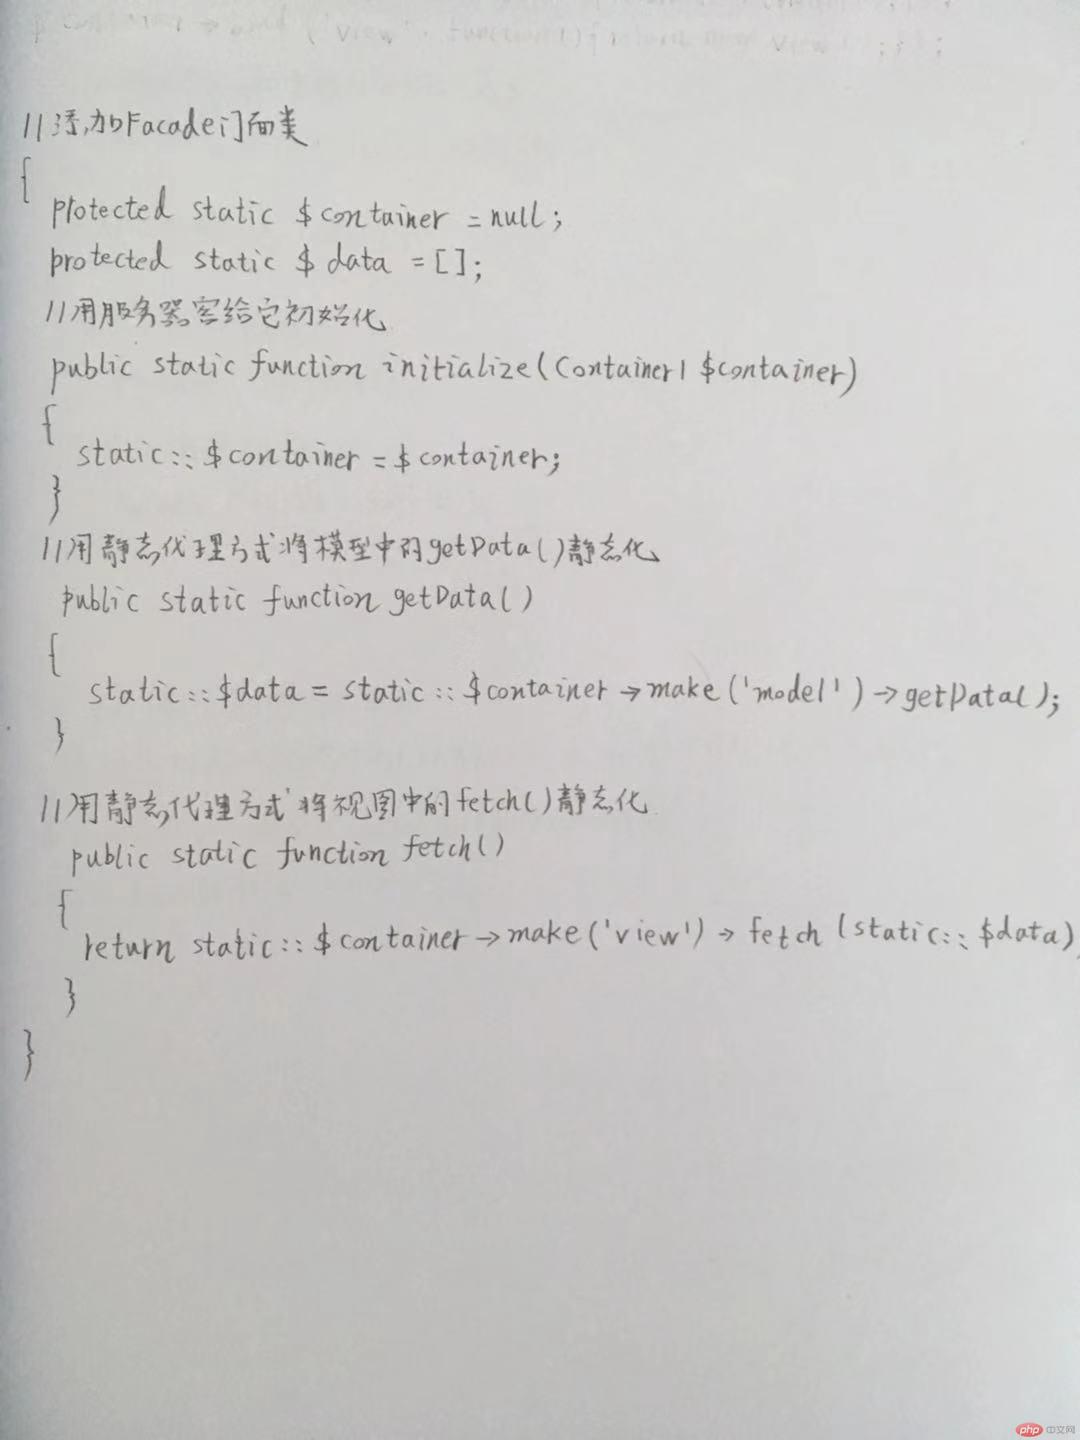 //添加Facade门面类
{
protected static $container = null;
protected static $ data = [];
//用服务器容给它初始化
public static function initialize(Container1 $container)
{
static::$container = $container;
}
//用静态代理方式将模型中的getData()静态化
public static function getData()
{
static::$data = static::$container->make('model')->getData();
}
//用静态代理方式将视图中的fetch()静态化
public static function fetch()
{
return static::$container->make('view')->fetch(static::$data)
}
}
php 中文网